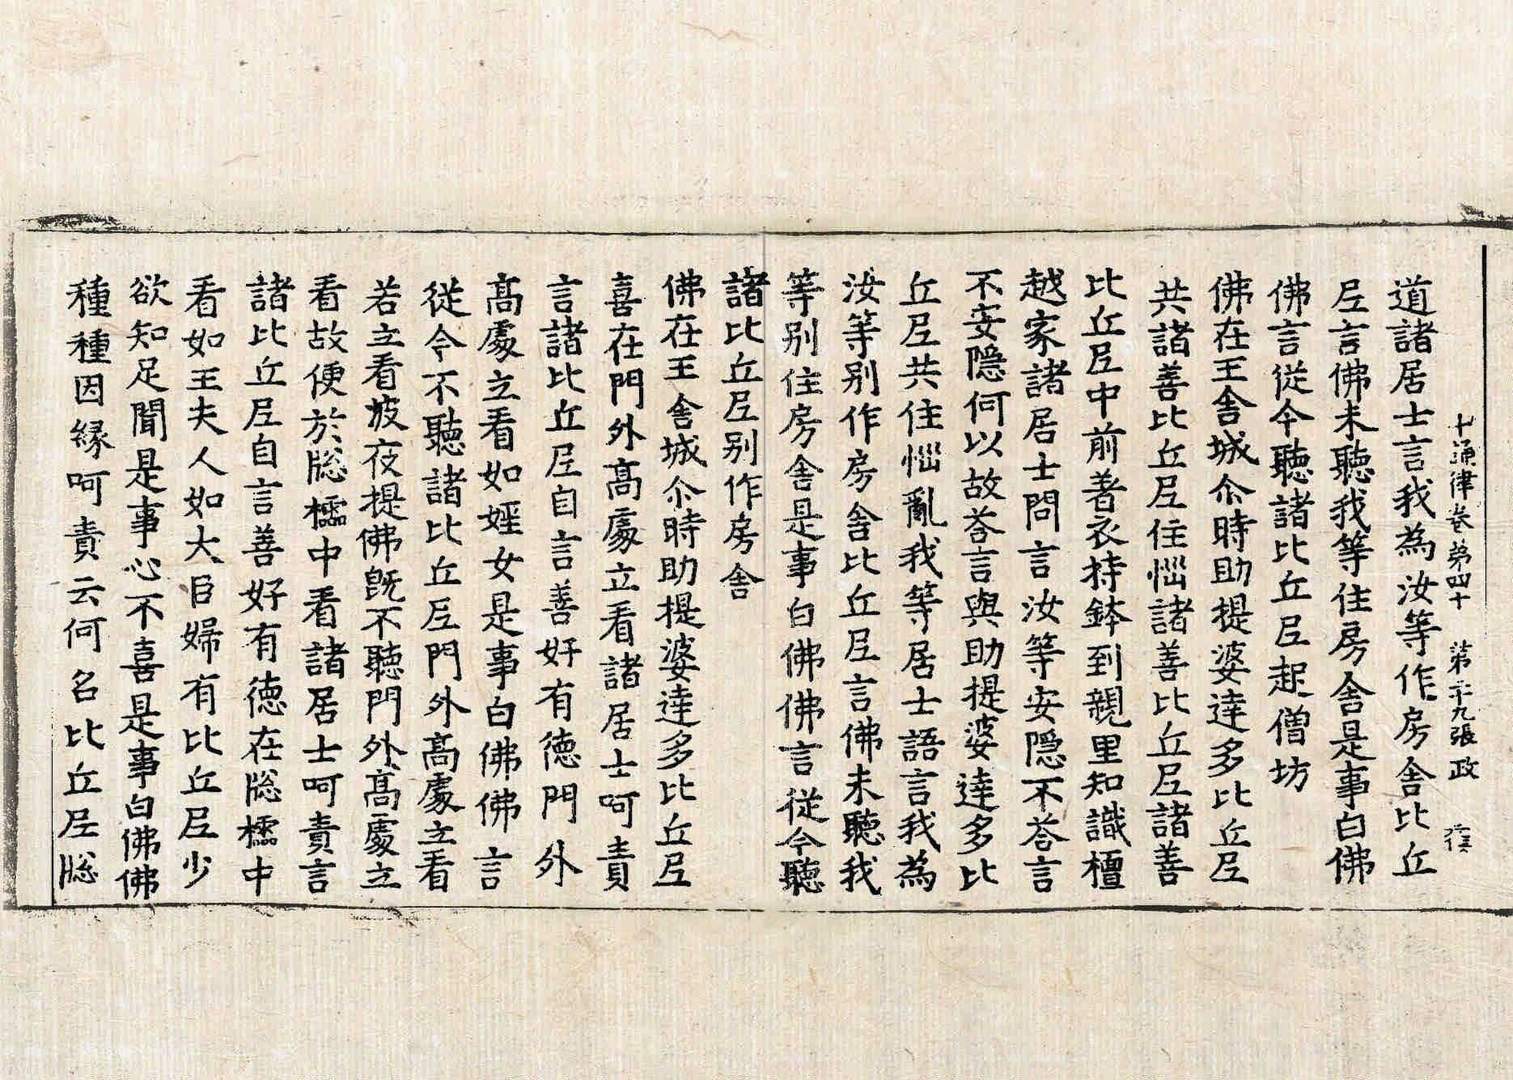 十誦律卷第四十 第二十九張 政
道諸居士言我為汝等作房舍比丘
尼言佛未聽我等住房舍是事白佛
佛言從今聽諸比丘尼起僧坊
佛在王舍城尒時助提婆達多比丘尼
共諸善比丘尼住惱諸善比丘尼諸善
比丘尼中前著衣持鉢到親里知識檀
越家諸居士問言汝等安隱不荅言
不安隱何以故荅言與助提婆達多比
丘尼共住惱亂我等居士語言我為
汝等別作房舍比丘尼言佛未聽我
等別住房舍是事白佛佛言從今聽
諸比丘尼別作房舍
佛在王舍城尒時助提婆達多比丘尼
喜在門外高處立看諸居士呵責
言諸比丘尼自言善好有德門外
高處立看如婬女是事白佛佛言
從今不聽諸比丘尼門外高處立看
若立看波夜提佛旣不聽門外高處立
看故便於牎櫺中看諸居士呵責言
諸比丘尼自言善好有德在牎櫺中
看如王夫人如大臣婦有比丘尼少
欲知足聞是事心不喜是事白佛佛
種種因緣呵責云何名比丘尼牎